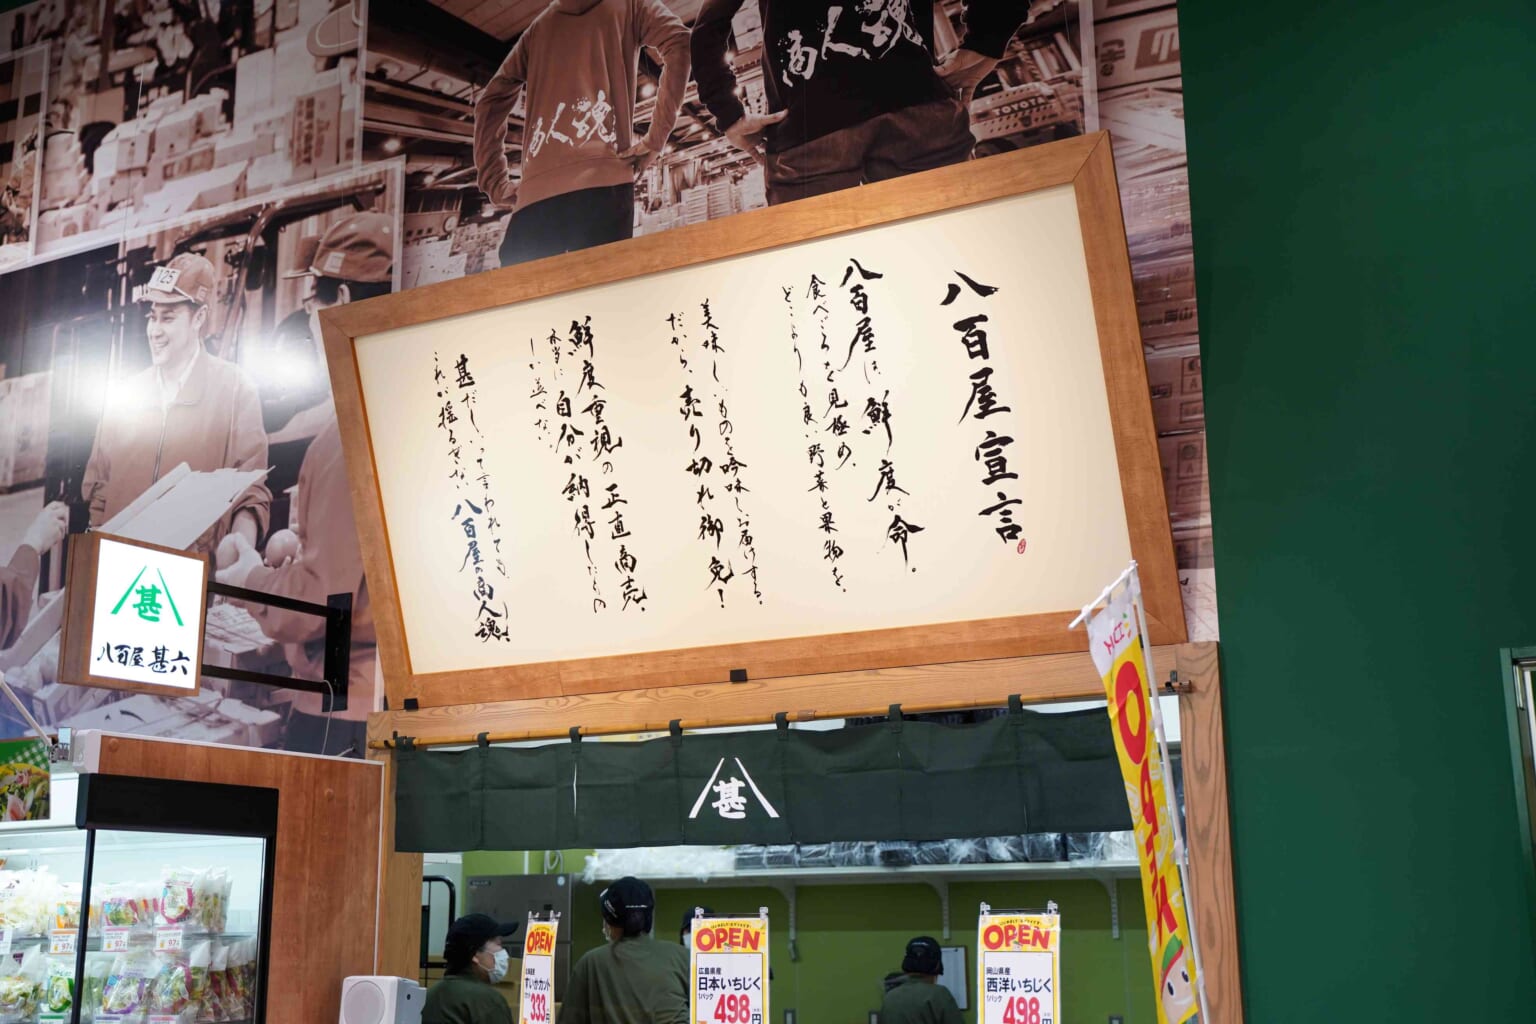 商人魂
商人魂
TOYOTA
125
八百屋宣言
八百屋は、鮮度が命。
食べごろを見極め、
どこよりも良い野菜と果物を。
美味しいものを吟味しお届けする。
だから、売り切れ御免!
鮮度重視の正直商売。
本当に自分が納得したもの
しか並べない。
甚だしいって言われても、
これが揺るぎない八百屋の商人魂。
甚
八百屋 甚六
甚
OPEN
OPEN
すいかカット
333円
OPEN
広島県産
日本いちじく
1パック
498円
OPEN
岡山県産
西洋いちじく
1パック
498円
97
97
97